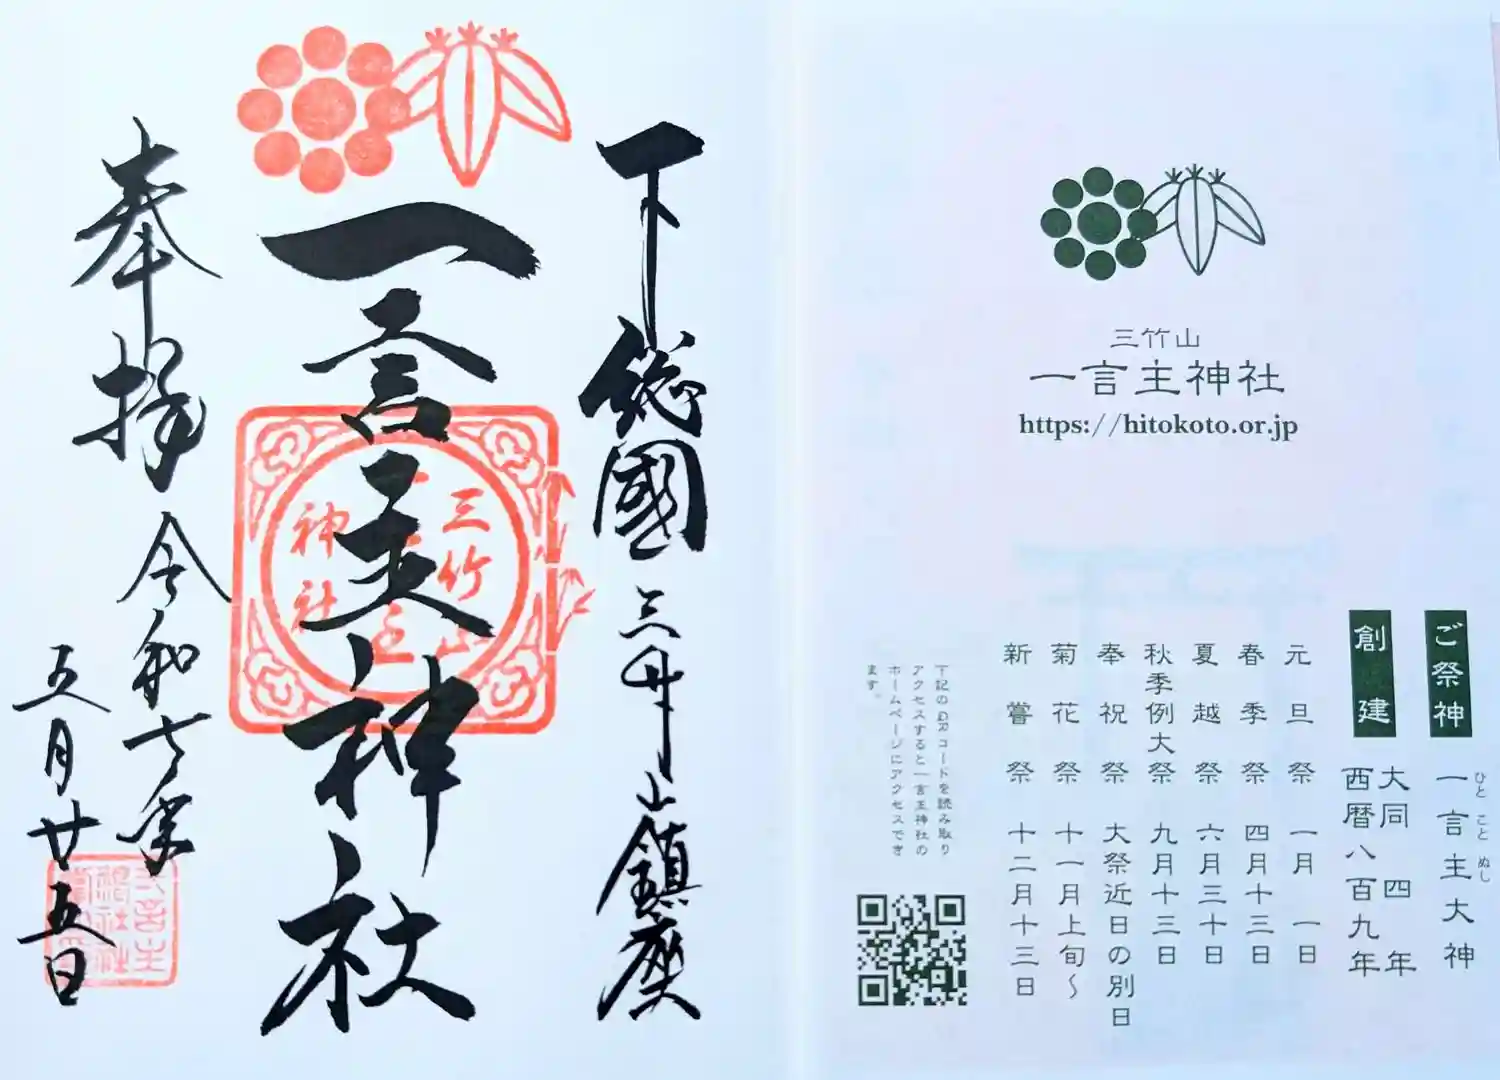 下総國三竹山鎮座
一言主神社
奉拝
令和七年
五月廿五日
三竹山
一言主
神社
三竹山
一言主神社
https://hitokoto.or.jp
ご祭神
一言主大神
ひと こと ぬし
創建
大同四年
西暦八百九年
元旦祭 一月一日
春季祭 四月十三日
夏越祭 六月三十日
秋季例大祭 九月十三日
奉祝祭 大祭近日の別日
菊花祭 十一月上旬～
新嘗祭 十二月十三日
下記のQRコードを読み取り
アクセスすると一言主神社の
ホームページにアクセスでき
ます。